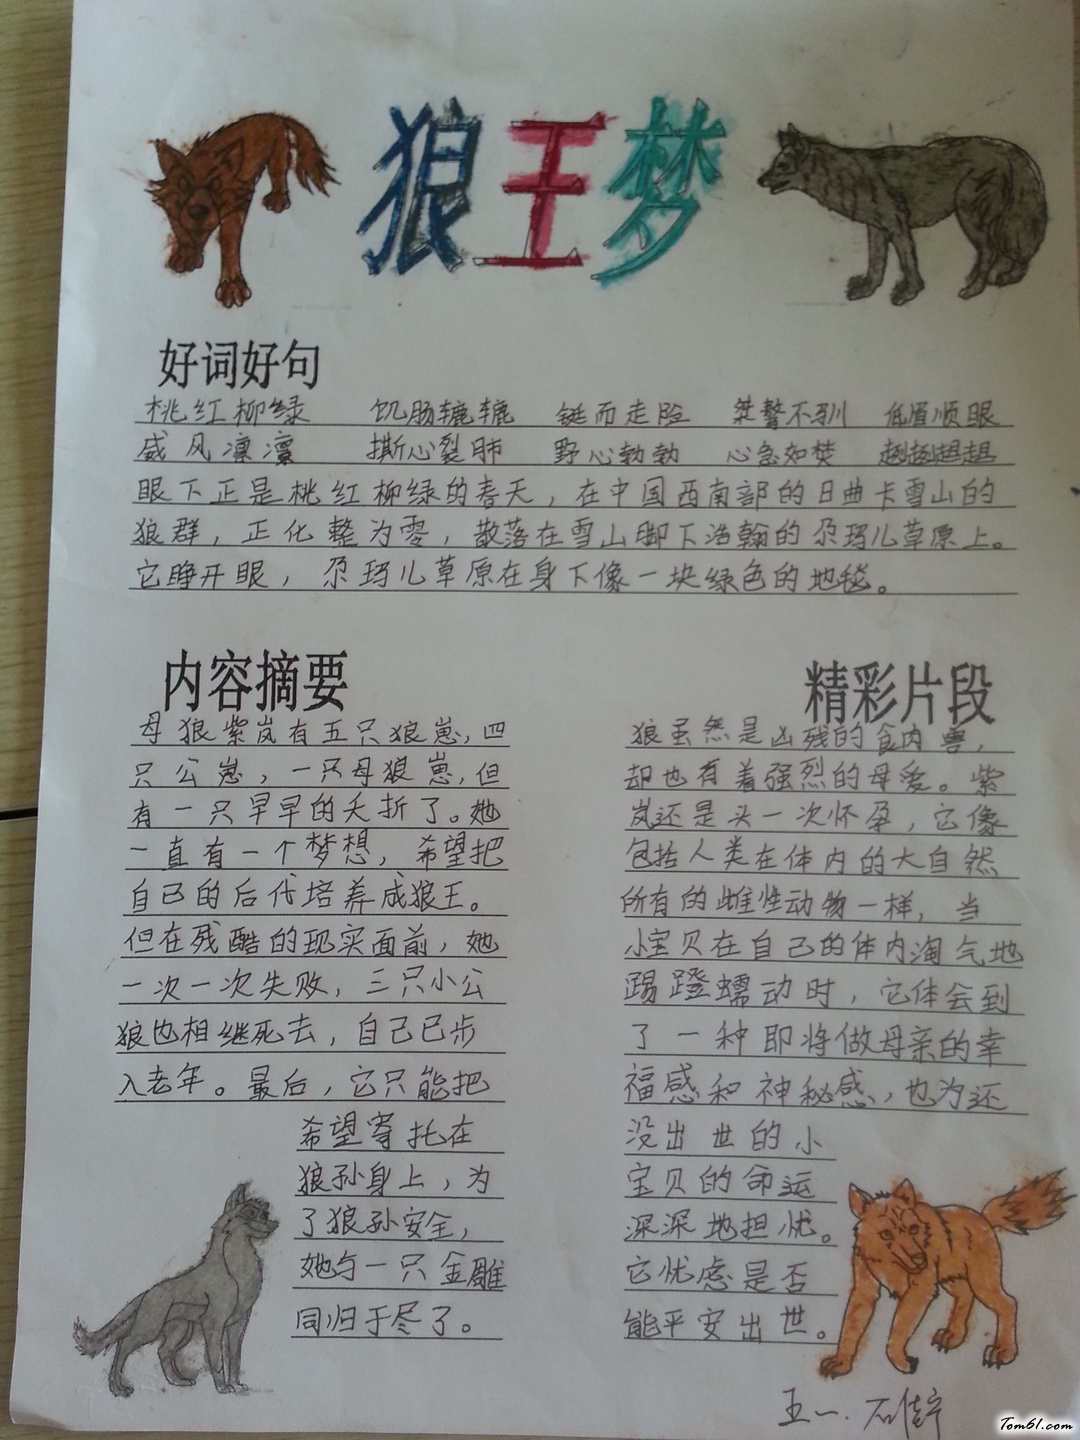 狼王梦
好词好句
桃红柳绿 饥肠辘辘 铤而走险 桀骜不驯 低眉顺眼
威风凛凛 撕心裂肺 野心勃勃 心急如焚 趔趔趄趄
眼下正是桃红柳绿的春天，在中国西南部的日曲卡雪山的
狼群，正化整为零，散落在雪山脚下浩翰的尕玛儿草原上。
它睁开眼，尕玛儿草原在身下像一块绿色的地毯。
内容摘要
母狼紫岚有五只狼崽，四
只公崽，一只母狼崽，但
有一只早早的夭折了。她
一直有一个梦想，希望把
自己的后代培养成狼王。
但在残酷的现实面前，她
一次一次失败，三只小公
狼也相继死去，自己已步
入老年。最后，它只能把
希望寄托在
狼孙身上，为
了狼孙安全，
她与一只金雕
同归于尽了。
精彩片段
狼虽然是凶残的食肉兽，
却也有着强烈的母爱。紫
岚还是头一次怀孕，它像
包括人类在体内的大自然
所有的雌性动物一样，当
小宝贝在自己的体内淘气地
踢蹬蠕动时，它体会到
了一种即将做母亲的幸
福感和神秘感，也为还
没出世的小
宝贝的命运
深深地担忧。
它忧虑是否
能平安出世。
五一.
Tom61.com